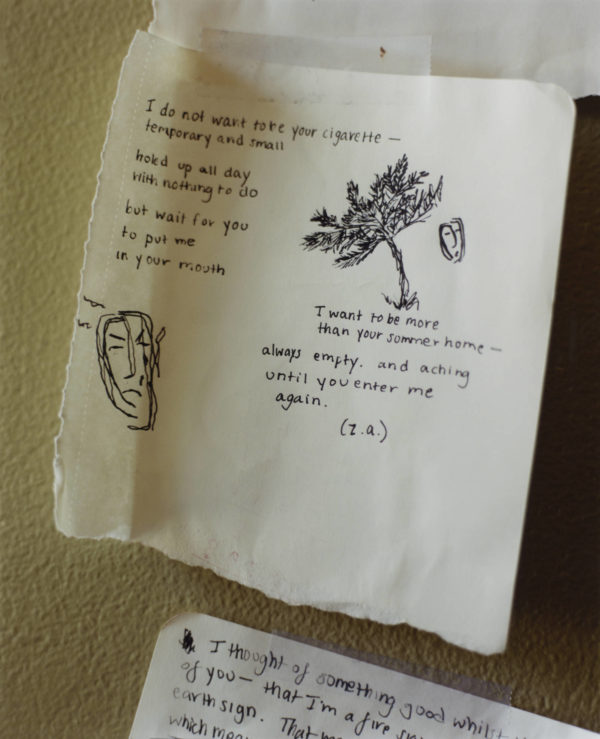 I do not want to be your cigarette —
temporary and small
holed up all day
with nothing to do
but wait for you
to put me
in your mouth
I want to be more
than your summer home —
always empty. and aching
until you enter me
again.
(z.a.)
I thought of something good whilst
of you — that I'm a fire
earth sign. That
which